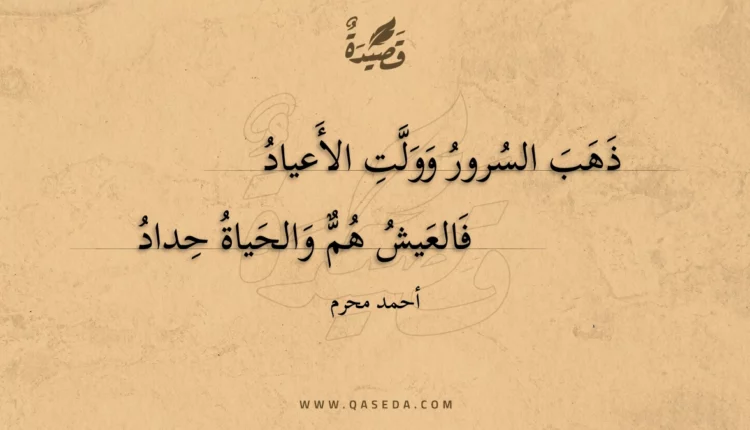 قَصِيْدَةٌ
ذَهَبَ السُرورُ وَوَلَّتِ الأَعيادُ
فَالعَيشُ هُمٌّ وَالحَياةُ حِدادُ
أحمد محرم
WWW.QASEDA.COM